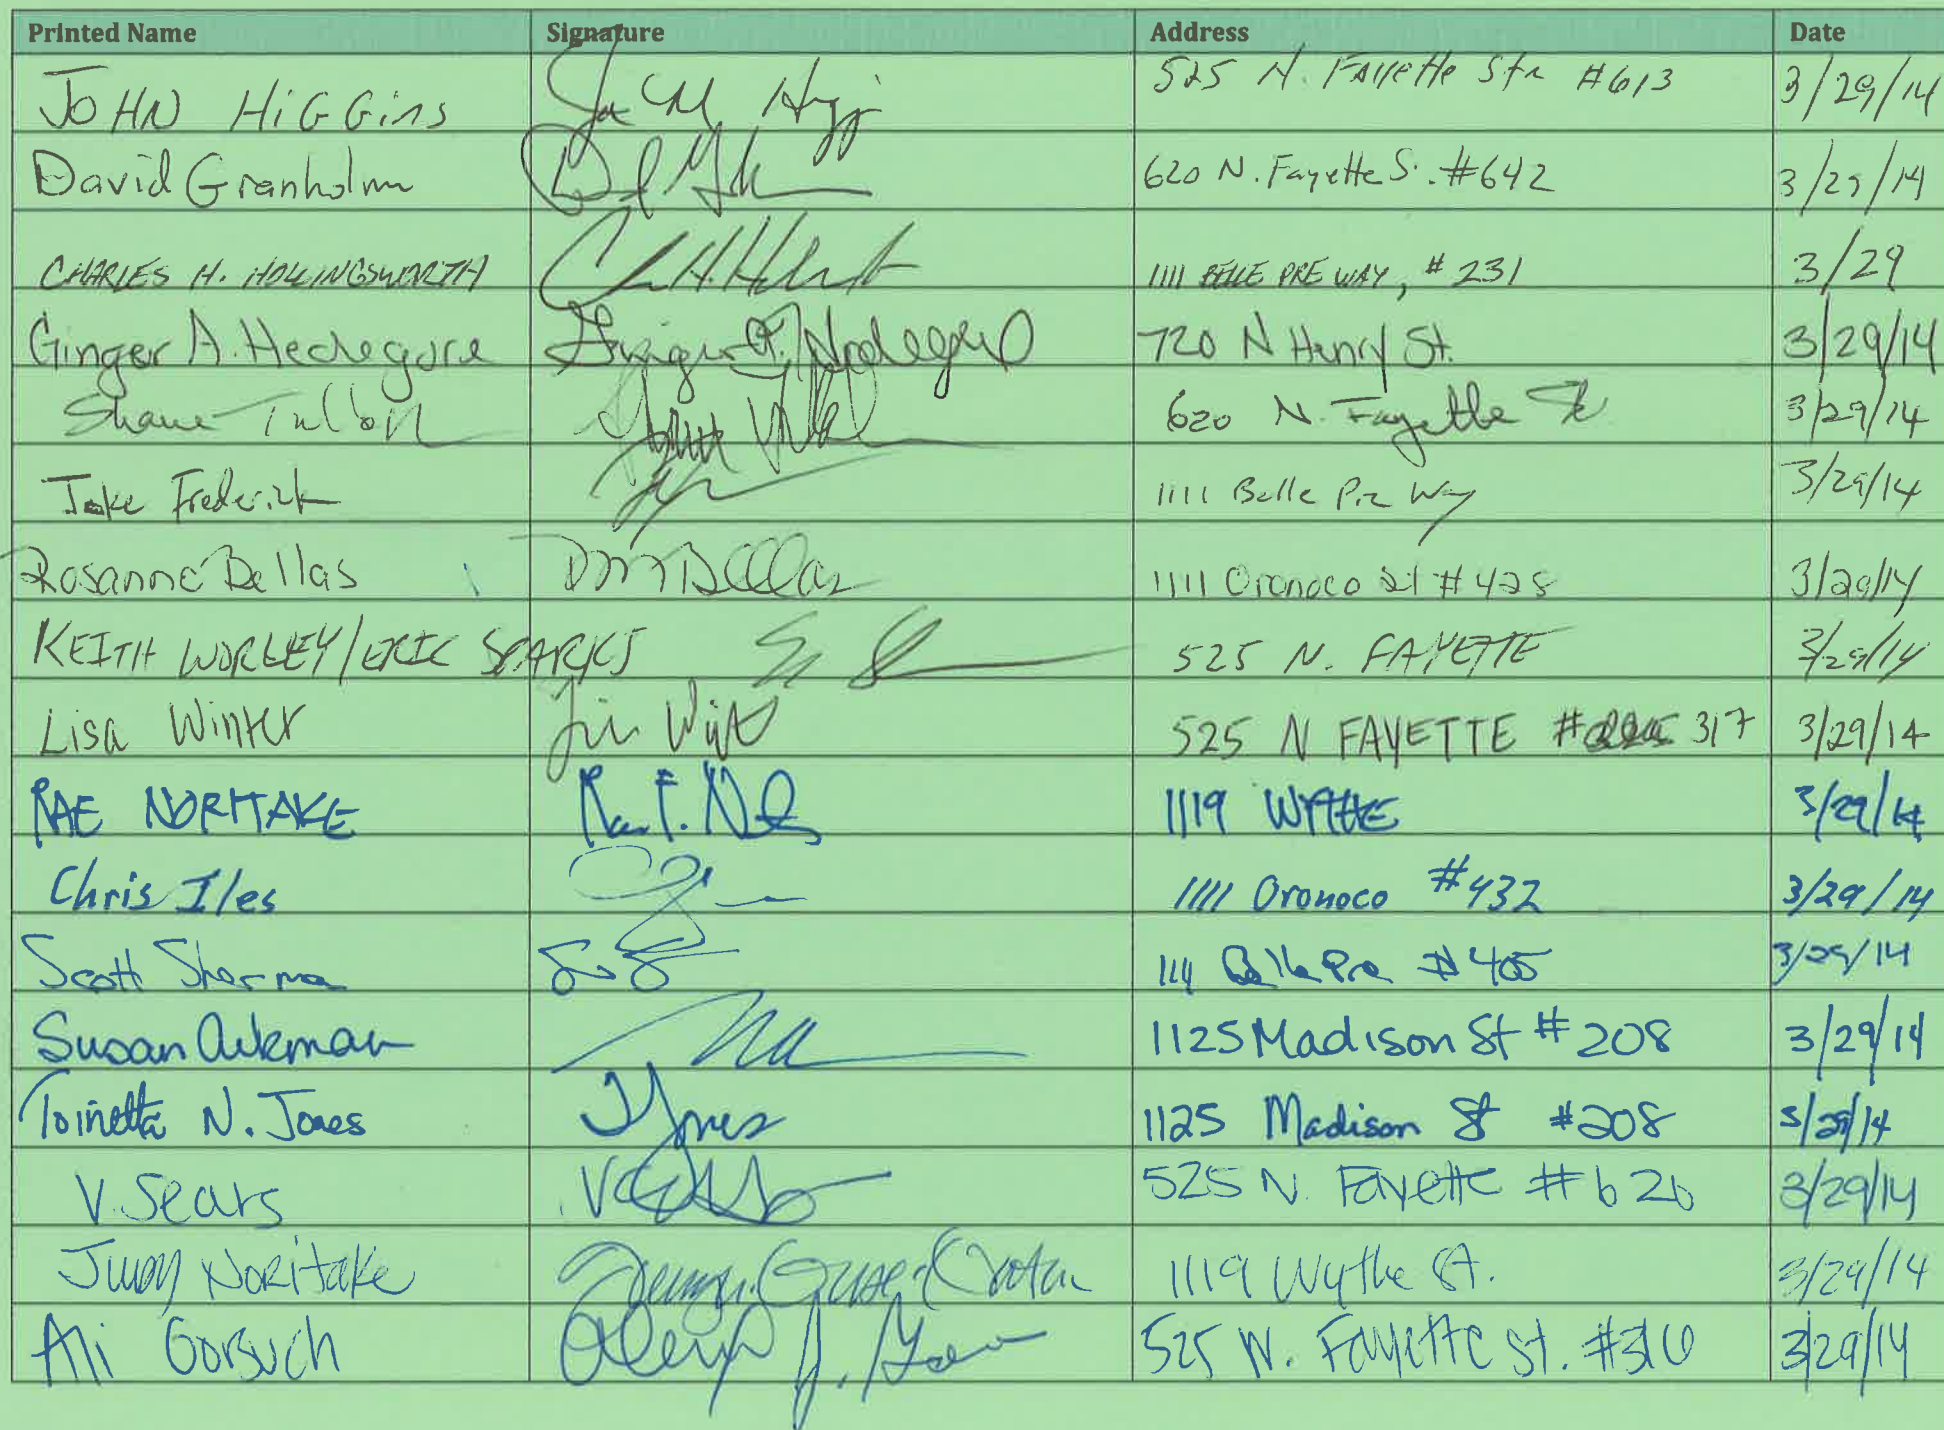 Printed Name Signature Address Date
JOHN HiGGins 525 N. FAyette Str #613 3/29/14
David Granholm 620 N. Fayette S. #642 3/29/14
CHARLES H. HOLLINGSWORTH 1111 BELLE PRE WAY, #231 3/29
Ginger A. 720 N Henry St. 3/29/14
Shane 620 N. Fayette St 3/29/14
Jake Frederick 1111 Belle Pre Way 3/29/14
Rosanne Bellas Bellas 1111 Oronoco St #428 3/29/14
KEITH WORLEY/ERIC SPARKS 525 N. FAYETTE 3/29/14
Lisa Winter 525 N FAYETTE # 317 3/29/14
RAE NORITAKE 1119 WYTHE 3/29/14
Chris Iles 1111 Oronoco #432 3/29/14
Scott Sherma 1111 Belle Pre #405 3/29/14
Susan 1125 Madison St #208 3/29/14
Toinetta N. Jones Jones 1125 Madison St #208 3/29/14
V. Sears 525 N. Fayette #620 3/29/14
Judy Noritake 1119 Wythe St. 3/29/14
Ali Gorsuch 525 N. Fayette St. #316 3/29/14